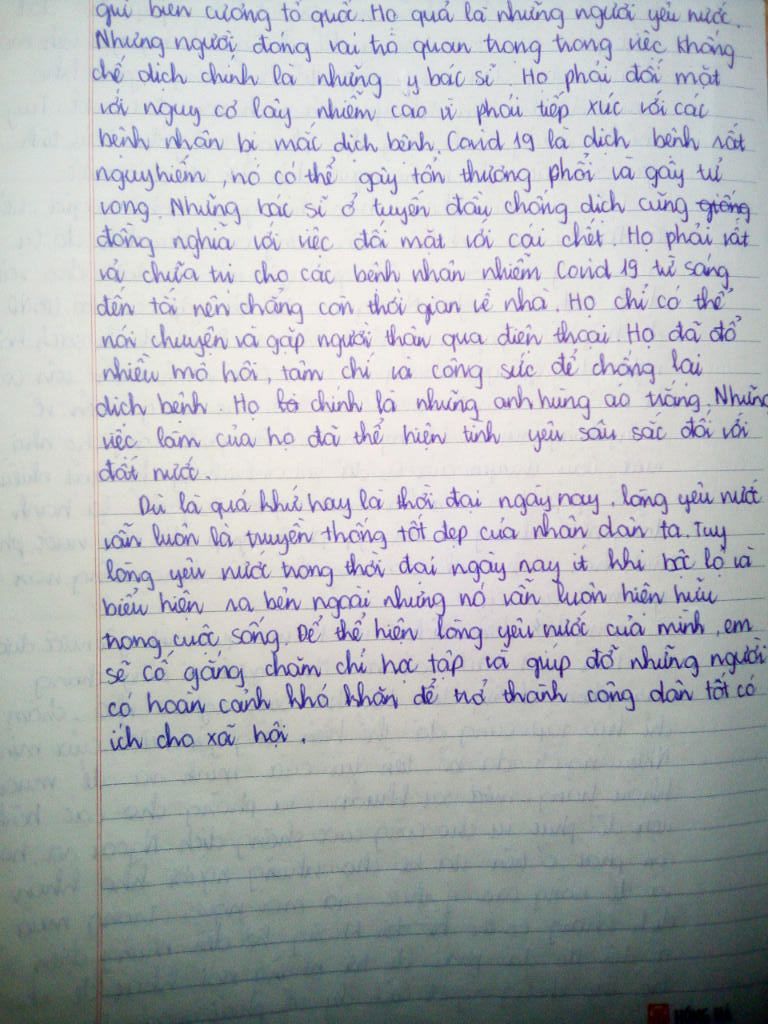 giữ biên cương tổ quốc. Họ quả là những người yêu nước.
Những người đóng vai trò quan trọng trong việc khống
chế dịch chính là những y bác sĩ. Họ phải đối mặt
với nguy cơ lây nhiễm cao vì phải tiếp xúc với các
bệnh nhân bị mắc dịch bệnh. Covid 19 là dịch bệnh rất
nguy hiểm, nó có thể gây tổn thương phổi và gây tử
vong. Những bác sĩ ở tuyến đầu chống dịch cũng giống
đồng nghĩa với việc đối mặt với cái chết. Họ phải vất
vả chữa trị cho các bệnh nhân nhiễm Covid 19 từ sáng
đến tối nên chẳng còn thời gian về nhà. Họ chỉ có thể
nói chuyện và gặp người thân qua điện thoại. Họ đã đổ
nhiều mồ hôi, tâm chí và công sức để chống lại
dịch bệnh. Họ chính là những anh hùng áo trắng. Những
việc làm của họ đã thể hiện tình yêu sâu sắc đối với
đất nước.
Dù là quá khứ hay là thời đại ngày nay, lòng yêu nước
vẫn luôn là truyền thống tốt đẹp của nhân dân ta. Tuy
lòng yêu nước trong thời đại ngày nay ít khi bộc lộ và
biểu hiện ra bên ngoài nhưng nó vẫn luôn hiện hữu
trong cuộc sống. Để thể hiện lòng yêu nước của mình, em
sẽ cố gắng, chăm chỉ học tập và giúp đỡ những người
có hoàn cảnh khó khăn để trở thành công dân tốt có
ích cho xã hội.